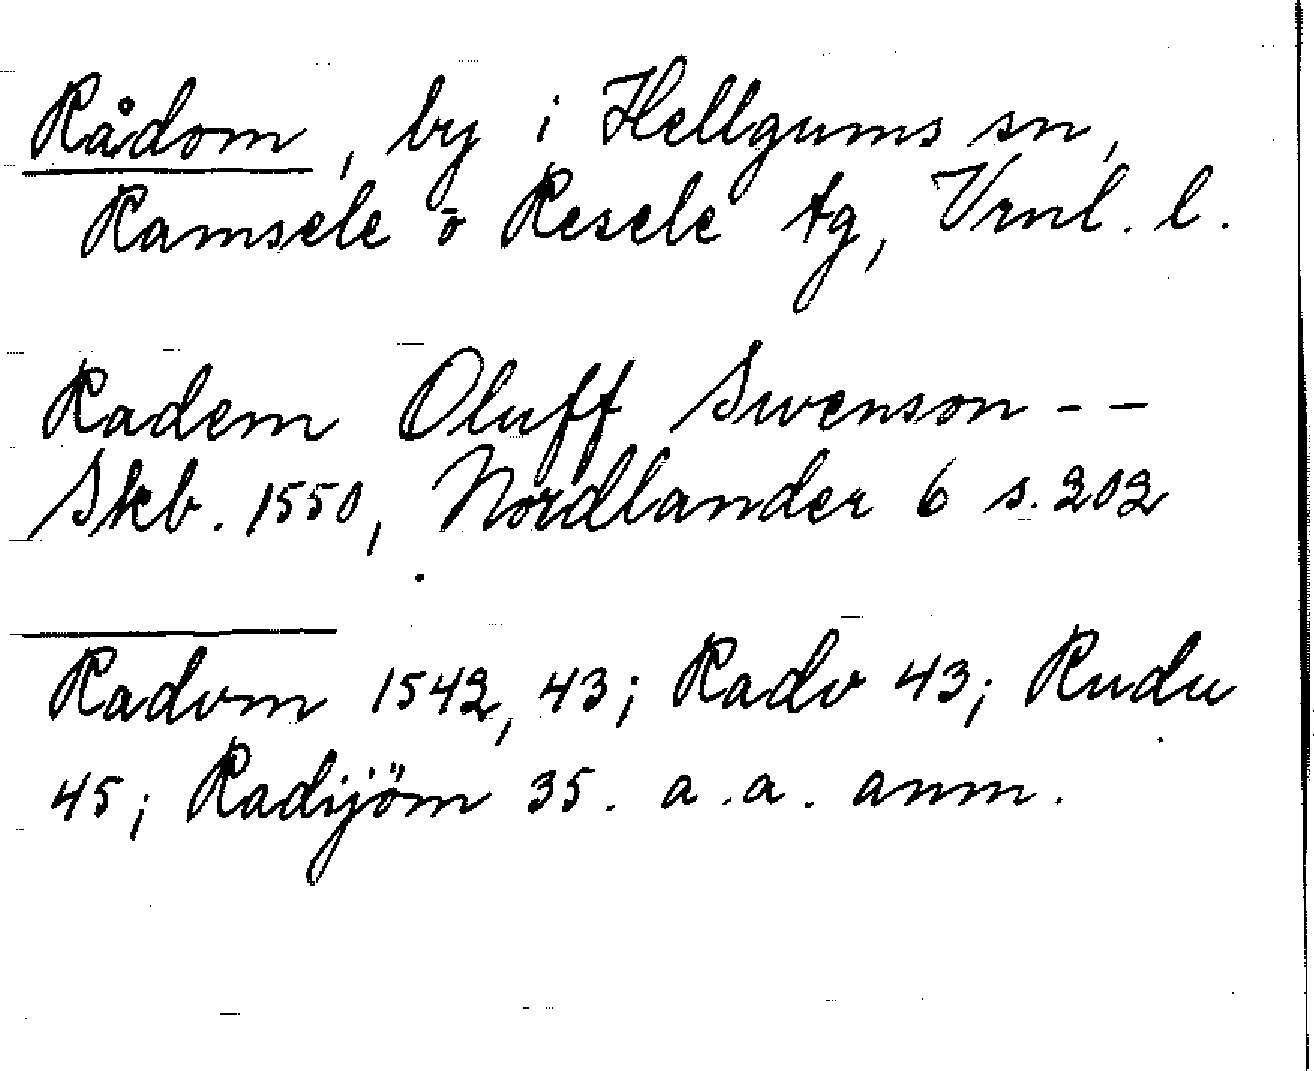 Rådom, by i Hellgums sn,
Ramsele o Resele tg, Vrnl. l.
Radem Oluff Swenson - -
Skb. 1550, Nordlander 6 s. 202
Radvm 1542, 43; Radv 43; Rudu
45; Radijöm 35. a. a. anm.